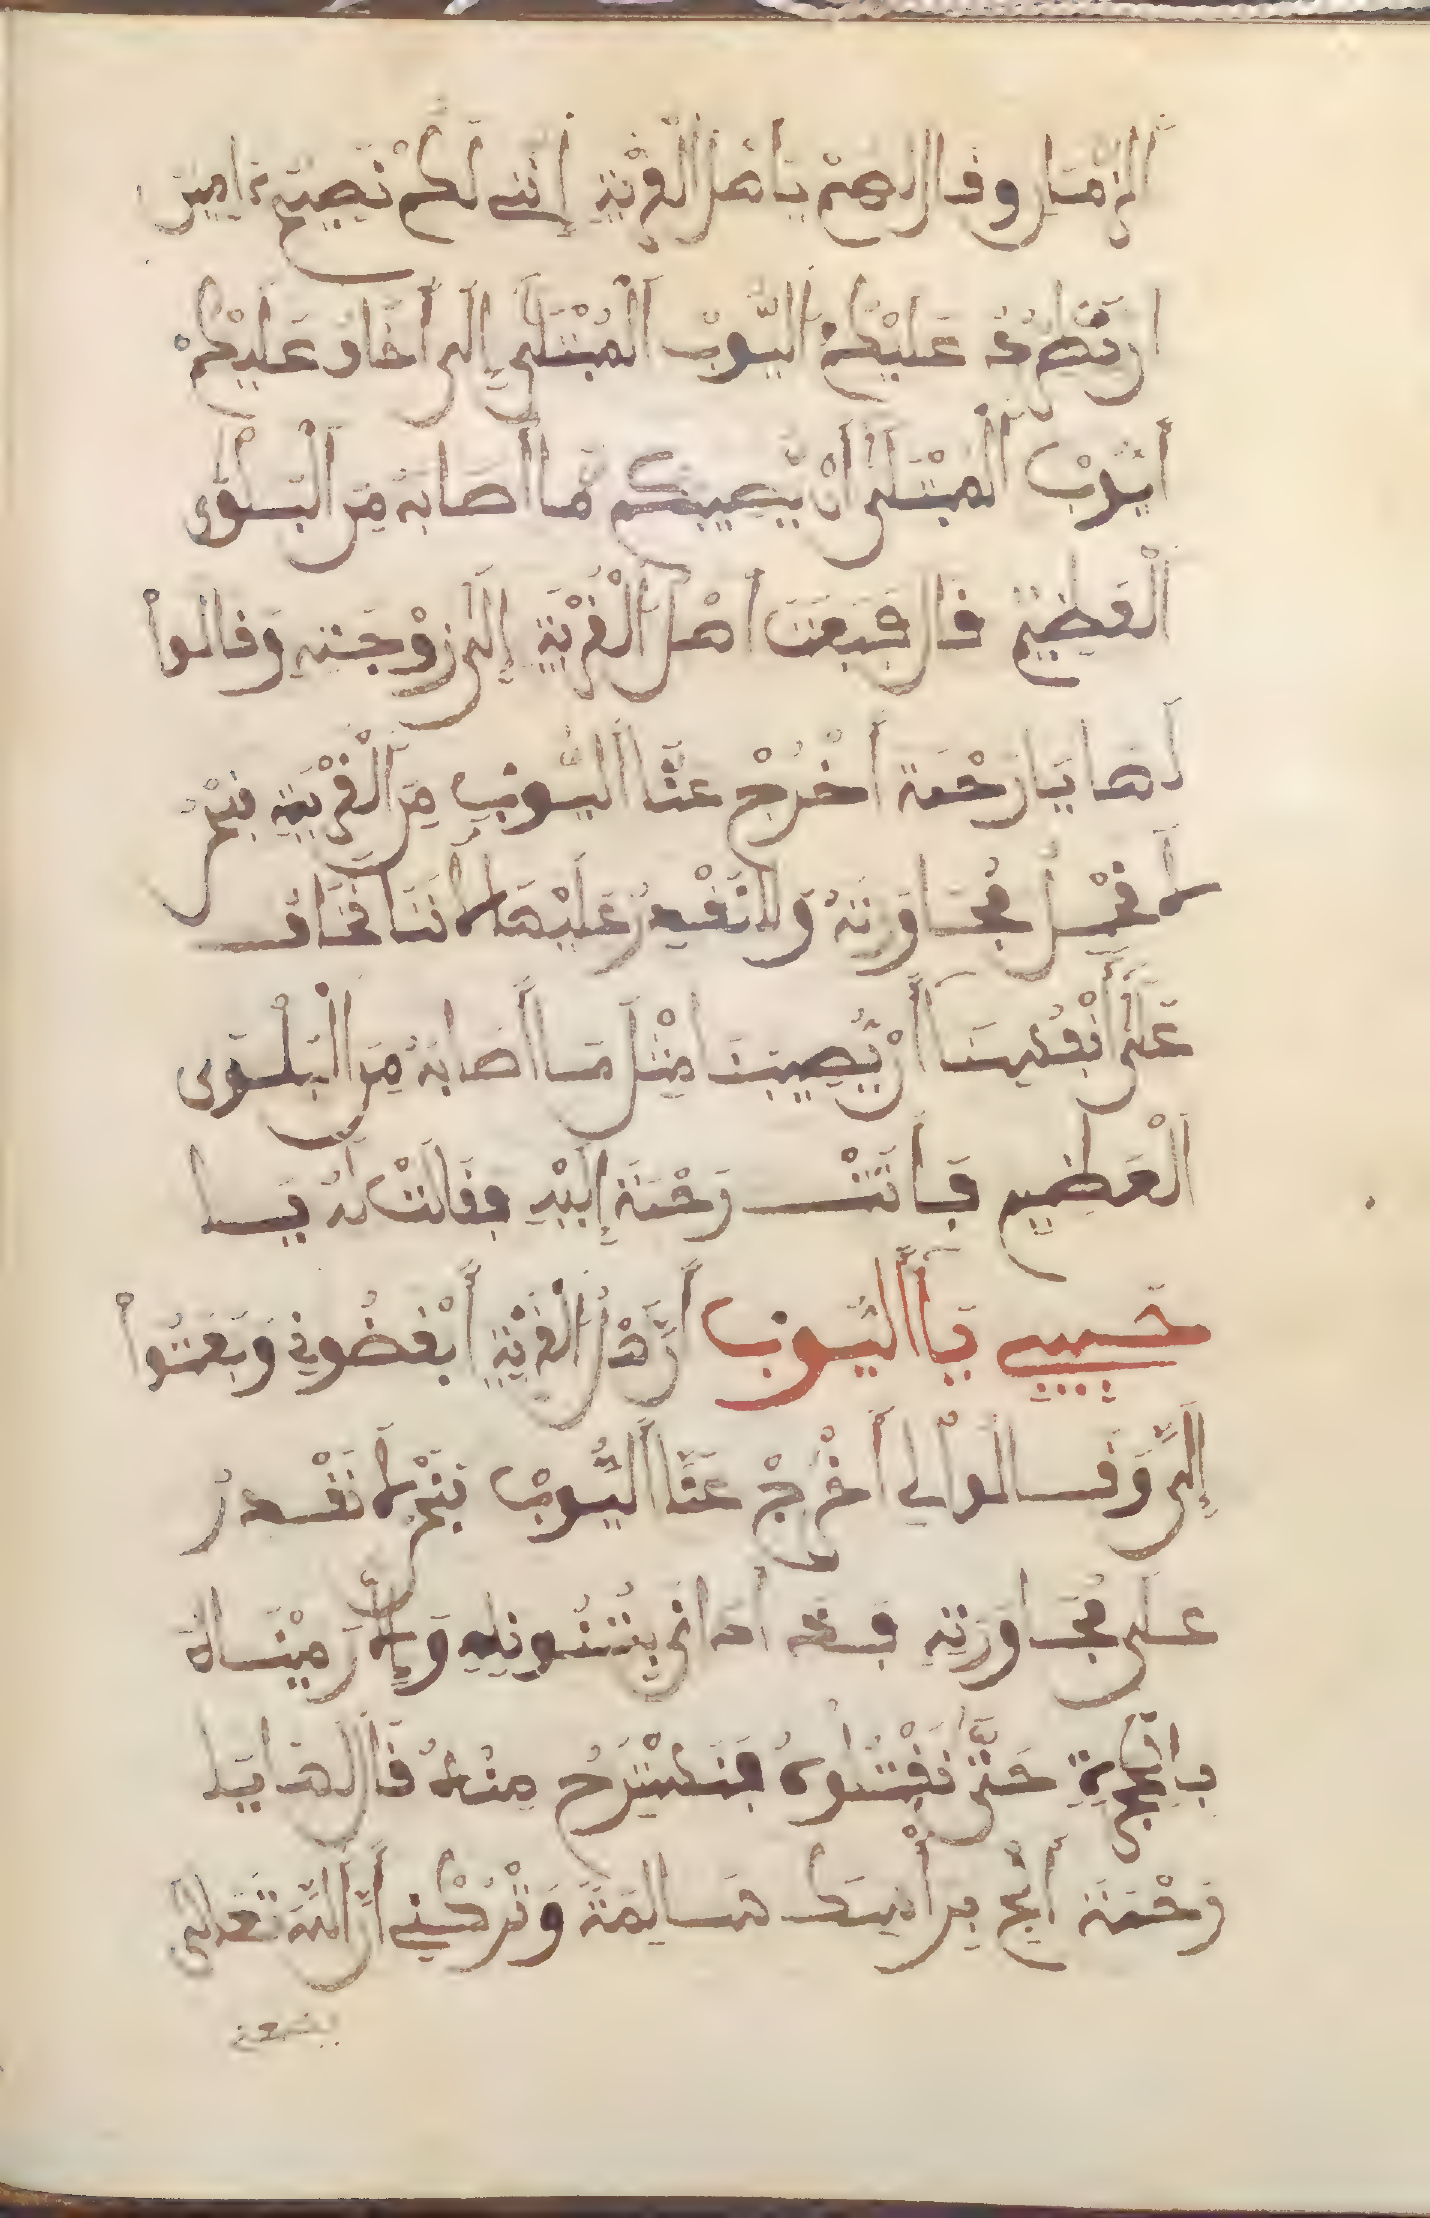 الزمان وقال لهم يا أهل القرية إني لكم نصيح امين
عليكم اليّوب المبتلى إلى أخاف عليكم
أيّوب المبتلى أن يّصيبكم ما أصابه من البلوى
العظيم قال فبعث أهل القرية إلى زوجته وقالوا
لها يا رحمة أخرج عنّا اليّوب من القرية
مجاورته ولا نقدر عليها لأننا نخاف
على أنفسنا أن يّصيبنا مثل ما أصابه من البلوى
العظيم فأتت رحمة إليه فقالت له يا
حبيبي يا أليّوب أنّ أهل القرية أبغضوني وبعثوا
إليّ وقالوا لي أخرج عنّا اليّوب لا نقدر
على مجاورته وإلا رميناه
بالحجرة حتّى نقتلوه فنستريح منه قال لها يا
رحمة أنج برأسك سالمة وتركني أنّ الله تعالى